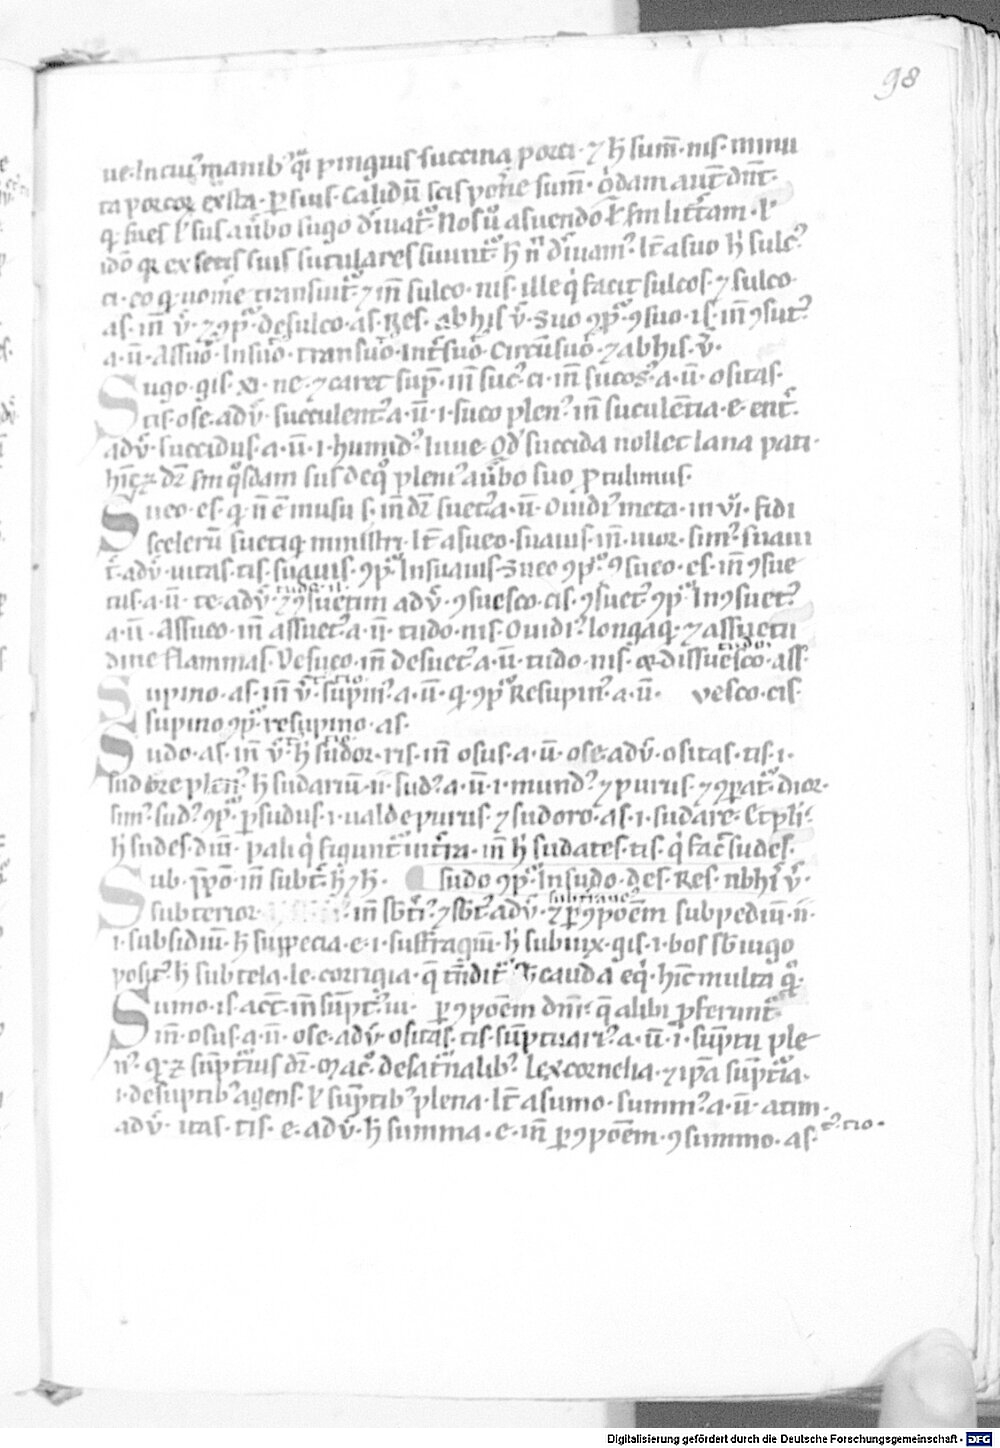 98
ue·In cui᷒ manib᷒ q̃i pinguis succina porci· ⁊ h̃ sum̃·nis· minu
ta porcoꝝ exta· ꝑ suis· Calidũ scis pone sum̃· q̇dam aut̃ dñt·
ꝙ sues ł sus a ũbo sugo d̾iuat᷑· Nos ũ a suendo ł sm litt̃am· ł
idõ ꝙ ex setis suis sutulares suunt᷑· h̃ ñ d̾iuam᷒· It̃ a suo h̾ sulc᷒·
ci· eo ꝙ uom̃e transuit᷑· ⁊ iñ sulco·nis· ille q̇ facit sulcos· ⁊ sulco·
as· iñ ṽ· ⁊ ꝯp᷑· desulco·as· Res· ab his ṽ· Suo ꝯp᷑· ꝯsuo·is· iñ ꝯsut᷒·
a·ũ· Assuo· Insuo· transuo· Int̃suo· Circũsuo· ⁊ ab his· ṽ·
Sugo·gis·xi· ne· ⁊ caret sup̃· iñ suc᷒·ci· iñ sucos᷒·a·ũ· ositas·
tis·ose·adṽ· succulent᷒·a·ũ·i· suco plen᷒· iñ suculẽtia·e·ent̃·
adṽ· succidus·a·ũ·i·humid᷒· Iuue· Qd̾ succida nollet lana pati·
hĩc ⁊ dr̃ sm q̾sdam sus de q̾ pleni᷒ a ũbo suo ꝓtulimus·
Sueo·es· ꝙ ñ ẽ in usu s· in dr̃ suet᷒·a·ũ· Ouidi᷒ meta· in vi· fidi
scelerũ suetiqꝫ ministri· It̃ a sueo· suauis· iñ· uior· sim᷒· suaui
t̃· adṽ· uitas·tis· suauis· ꝯp᷑· Insuauis· Sueo ꝯp᷑· ꝯsueo·es· iñ ꝯsue
tus·a·ũ· te·adṽ· ⁊ ꝯsuetim adṽ· ꝯsuesco·cis· ꝯsuet᷒ ꝯp᷑· Inꝯsuet᷒
a·ũ· Assueo· iñ assuet᷒·a·ũ· tudo·nis· Ouidi᷒· longaqꝫ· ⁊ assuetu
dine flammas· Desueo· iñ desuet᷒·a·ũ· tudo·nis· dissuesco· ass
Supino·as· iñ ṽ· supin᷒·a·ũ· ꝙ ꝯp᷑ Resupin᷒·a·ũ· vesco·cis·
supino ꝯp᷑· resupino·as·
Sudo·as· iñ ṽ· h̃ sudor·ris· iñ osus·a·ũ· ose·adṽ· ositas·tis·i·
sudore plen᷒· h̃ sudariũ·ii· sud᷒·a·ũ·i·mund᷒· ⁊ purus· ⁊ ꝯpat᷑· dior·
sim᷒· sud᷒· ꝯp᷑· ꝑsudus·i·ualde purus· ⁊ sudoro·as·i·sudare·
h̾ sudes·diũ· pali q̇ figunt᷑ in t̃ra· iñ h̾ sudates·tis· q̇ fac̃ sudes·
Sub· p̃põ· iñ subt̃· sudo ꝯp᷑· Insudo· des· Res· ab his ṽ·
subterior· iñ sbt᷒i᷒· ⁊ sbt᷒ adṽ· ⁊ ꝑ ꝯpoẽm subpediũ·ii·
i·subsidiũ· h̃ suppecia·e·i·suffragiũ· h̾ subiux·gis·i·bos sb̾ iugo
posit᷒· h̃ subtela·le·corrigia· q̃ tñdit᷑ cauda eq̇· hĩc multa ꝙ·
Sumo·is·act̃· iñ sũpt᷒·tu· ꝑ ꝯpoẽm dñr· q̃ alibi ꝓferunt᷑
iñ·osus·a·ũ· ose·adṽ· ositas·tis· sũptuari᷒·a·ũ·i·sũptu ple
n᷒· ꝙ ⁊ sũpt᷑ius dr̃· Mac᷑· de sat̃nalib᷒· lex cornelia· ⁊ ip̃a sũpt᷑ia·
i·de suptib᷒ agens· ł sũptib᷒ plena· It̃ a sumo· summ᷒·a·ũ· atim·
adṽ· itas·tis·e·adṽ· h̃ summa·e· iñ ꝑ ꝯpoẽm· ꝯsummo·as· t᷒·tio·
Digitalisierung gefördert durch die Deutsche Forschungsgemeinschaft - DFG